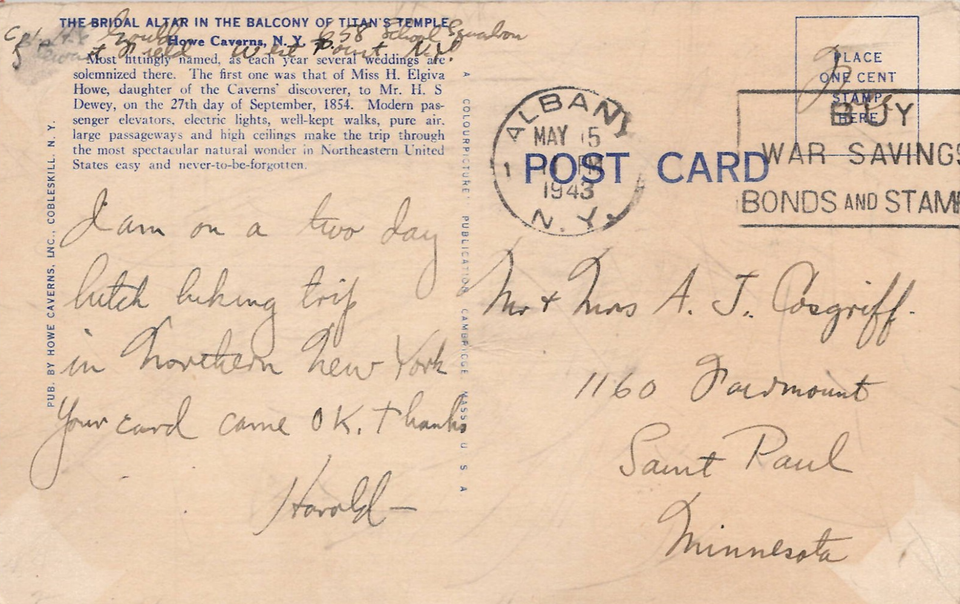 THE BRIDAL ALTAR IN THE BALCONY OF TITAN'S TEMPLE
Howe Caverns, N. Y.
Cpl. 658 School Squadron
Field West Point N.Y.
Most fittingly named, as each year several weddings are
solemnized there. The first one was that of Miss H. Elgiva
Howe, daughter of the Caverns' discoverer, to Mr. H. S
Dewey, on the 27th day of September, 1854. Modern pas-
senger elevators, electric lights, well-kept walks, pure air,
large passageways and high ceilings make the trip through
the most spectacular natural wonder in Northeastern United
States easy and never-to-be-forgotten.
PUB. BY HOWE CAVERNS, INC., COBLESKILL, N. Y.
I am on a two day
hitch hiking trip
in Northern New York
Your card came OK. Thanks
Harold
A COLOURPICTURE PUBLICATION CAMBRIDGE MASS U S A
ALBANY
MAY 15
1943
N.Y.
POST CARD
PLACE
ONE CENT
STAMP
HERE
BUY
WAR SAVINGS
BONDS AND STAM
Mr + Mrs A. J. Cosgriff.
1160 Fairmount
Saint Paul
Minnesota